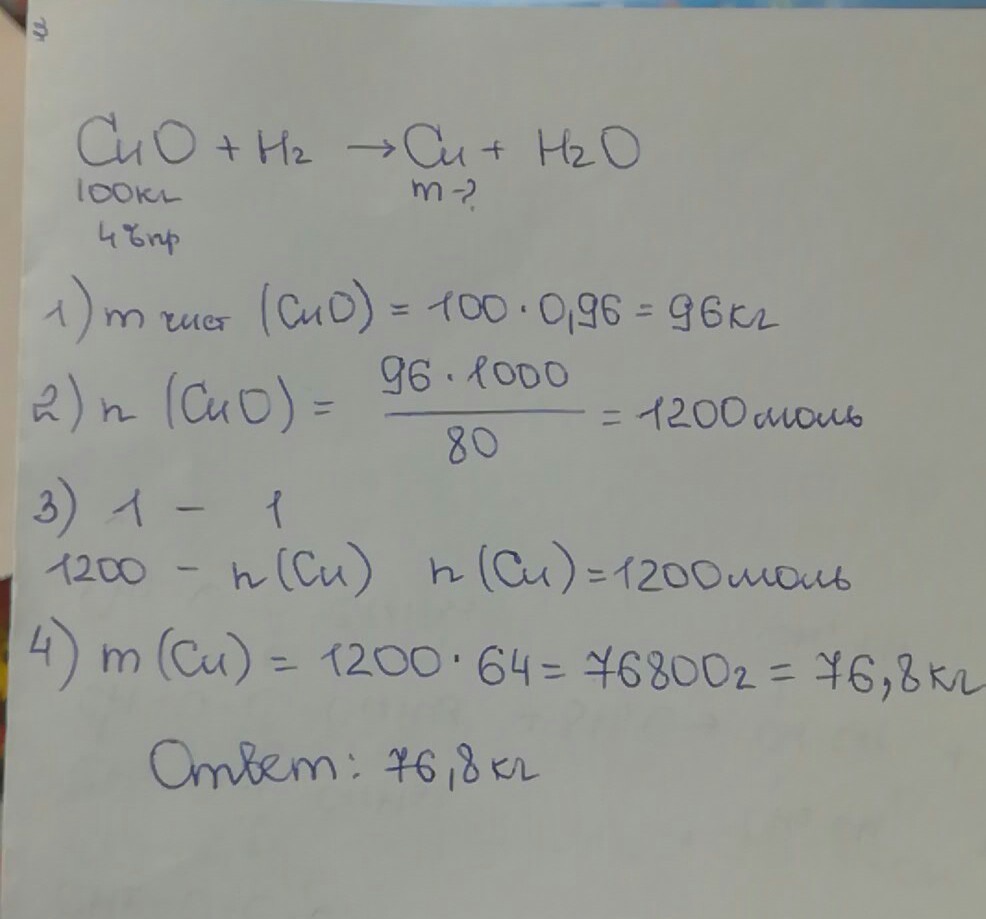 CuO + H2 → Cu + H2O
100кг m-?
4% пр
1) m чист (CuO) = 100 · 0,96 = 96кг
2) n (CuO) = 96 · 1000 / 80 = 1200 моль
3) 1 - 1
1200 - n (Cu) n (Cu) = 1200 моль
4) m (Cu) = 1200 · 64 = 76800г = 76,8кг
Ответ: 76,8 кг